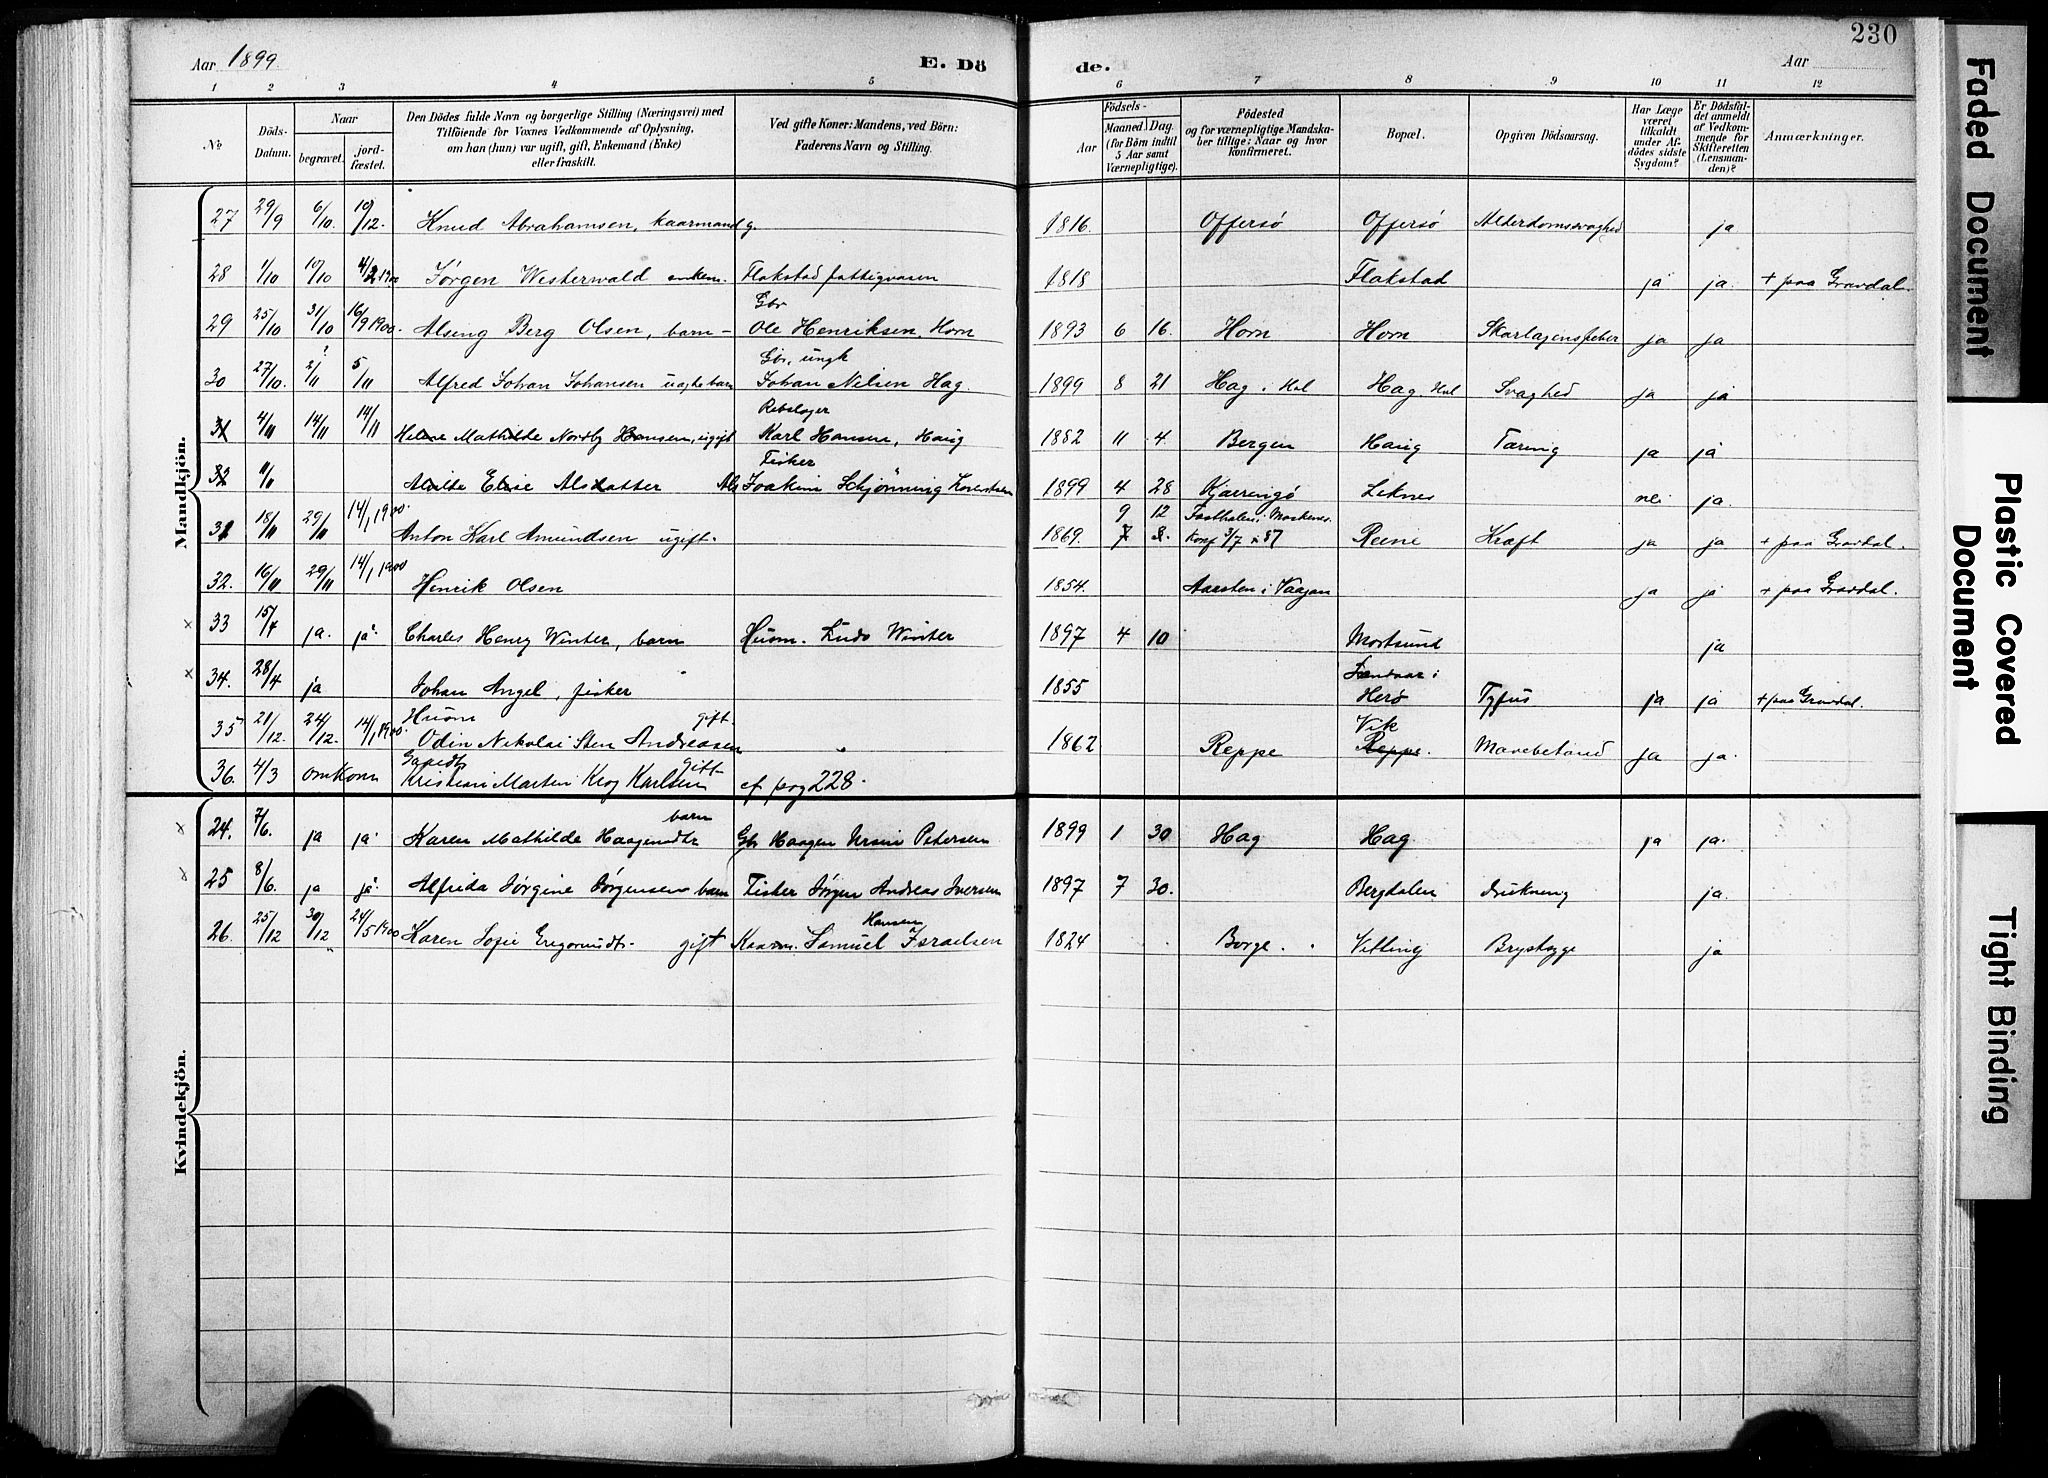 Aar 1899.
E. Dö
de.
Aar
230
1 2 3 4 5 6 7 8 9 10 11 12
№
Döds-Datum.
Naar
begravet.
jord-fæstet.
Den Dödes fulde Navn og borgerlige Stilling (Næringsvei) med
Tilföiende for Voxnes Vedkommende af Oplysning,
om han (hun) var ugift, gift, Enkemand (Enke)
eller fraskilt.
Ved gifte Koner: Mandens, ved Börn:
Faderens Navn og Stilling.
Födsels-
Aar
Maaned Dag.
(for Börn indtil
5 Aar samt
Værnepligtige).
Födested
og for værnepligtige Mandska-
ber tillige: Naar og hvor
konfirmeret.
Bopæl.
Opgiven Dödsaarsag.
Har Læge
været
tilkaldt
under Af-
dödes sidste
Sygdom?
Er Dödsfal-
det anmeldt
af Vedkom-
mende for
Skifteretten
(Lensman-
den)?
Anmærkninger.
Mandkjön.
27 29/9 6/10 10/12. Knud Abrahamsen, kaarmand g. 1816. Offersö Offersö Alderdomssvaghed ja
28 1/10 10/10 4/2 1900 Jørgen Westerwald enkem. Flakstad fattigvæsen 1818 Flakstad ja ja + paa Gravdal.
Gbr
29 25/10 31/10 16/9 1900. Alsing Berg Olsen, barn – Ole Henriksen, Horn 1893 6 16. Horn Horn Skarlagensfeber ja ja
Gbr, ungk
30 27/10. 2/11 5/11 Alfred Johan Johansen uægte barn Johan Nilsen Hag. 1899 8 21 Hag i Hol Hag Hol Svaghed ja ja
Rebslager
31 4/11 14/11 14/11 Helene Mathilde Nordby Hansen, ugift Karl Hansen, Haug 1882 11 4. Bergen Haug Tæring ja ja
Fisker
32 Alvilde Elise Alsdatter Als Joakim Schjönning 1899 4 28 Kjærringö Leknes nei ja.
9 12
31 18/11 29/11 14/1 1900. Anton Karl Amundsen ugift. 1869. 7 8. Konf 3/7 87 Reine Kræft ja ja + paa Gravdal.
32. 16/11 29/11 14/1 1900 Henrik Olsen 1854. Aarsten i Vaagan ja ja + paa Gravdal.
× 33 15/4 ja. ja. Charles Henry Winter, barn Husm. Winter 1897 4 10 Mortsund ja
× 34. 28/4 ja Johan Angel, fisker 1855 Herö Tyfus ja ja + paa Gravdal.
Husm gift. Vik
35 21/12. 24/12. 14/1 1900. Odin Nikolai Sten Andreasen 1862 Reppe Reppe. Mavebetænd ja ja.
Gaardb gift
36. 4/3 omkom Kristian Martin Krog Karlsen cf pag 228.
Kvindekjön.
barn
× 24. 7/6. ja ja. Karen Mathilde Haagensdtr Gbr Haagen Ursin Petersen 1899 1 30 Hag Hag ja ja.
× 25 8/6. ja ja. Alfrida Jørgine Jørgensen barn Fisker Jørgen Andreas Iversen 1897 7 30. Bergdalen drukning ja.
Hansen
26. 25/12 30/12 24/5 1900 Karen Sofie Gregoriusdtr. gift Kaarm. Samuel Israelsen 1824 Borge. Vetting Brystsyge ja
Faded Document
Plastic Covered Document
Tight Binding